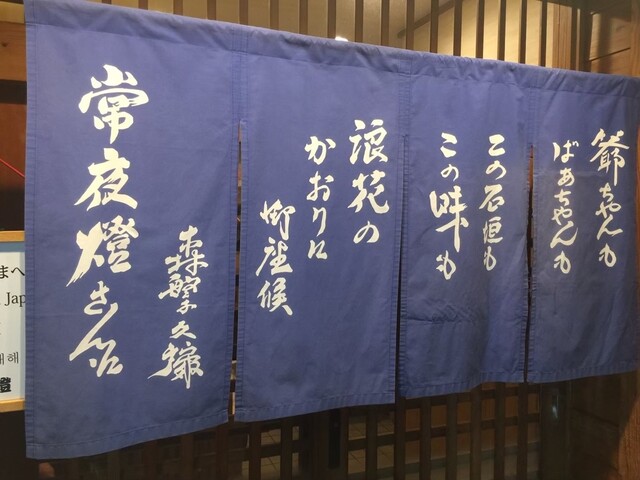 爺ちゃんも
ばあちゃんも
この石垣も
この味も
浪花の
かおりに
御座候
森繁久彌
常夜燈さん江
まへ
Jap